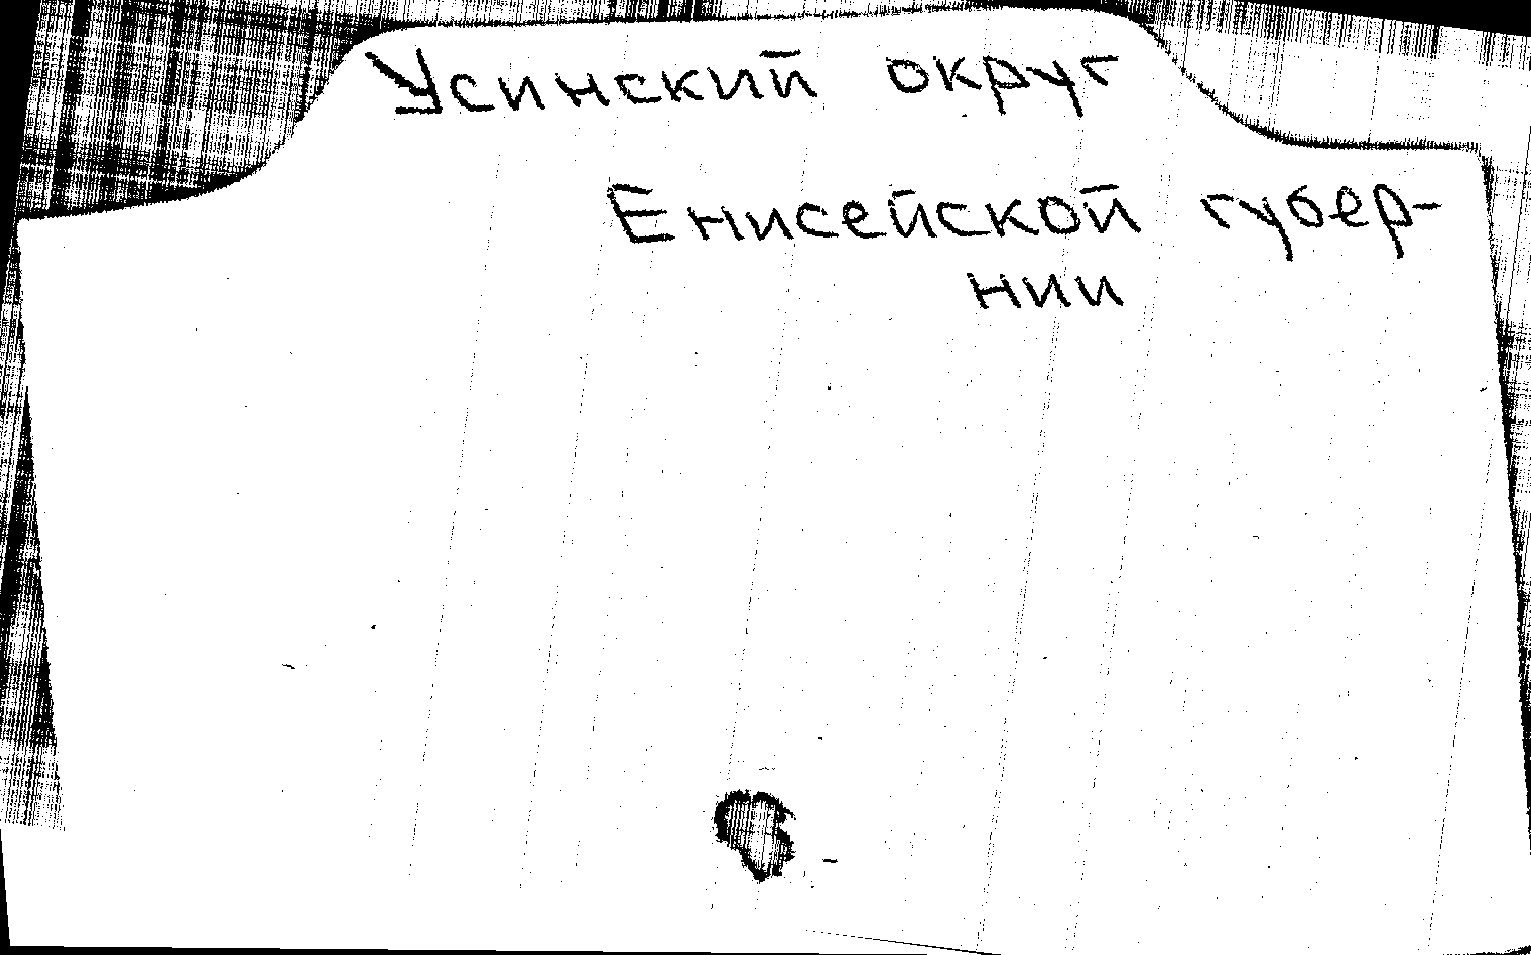 Усинский округ
Енисейской губер-
нии